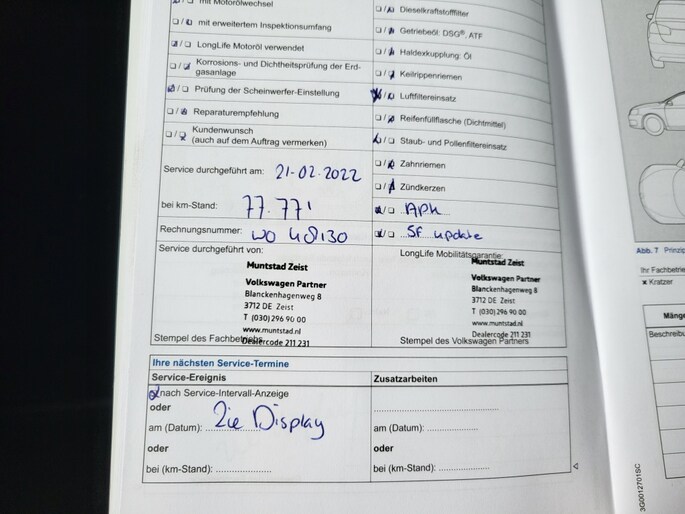 mit Motorölwechsel
mit erweitertem Inspektionsumfang
LongLife Motoröl verwendet
Korrosions- und Dichtheitsprüfung der Erd-
gasanlage
Prüfung der Scheinwerfer-Einstellung
Reparaturempfehlung
Kundenwunsch
(auch auf dem Auftrag vermerken)
Service durchgeführt am: 21-02.2022
bei km-Stand: 77.771
Rechnungsnummer: WO 48130
Service durchgeführt von:
Muntstad Zeist
Volkswagen Partner
Blanckenhagenweg 8
3712 DE Zeist
T (030) 296 90 00
www.muntstad.nl
Dealercode 211 231
Stempel des Fachbetriebs
Dieselkraftstofffilter
Getriebeöl: DSG®, ATF
Haldexkupplung: Öl
Keilrippenriemen
Luftfiltereinsatz
Reifenfüllflasche (Dichtmittel)
Staub- und Pollenfiltereinsatz
Zahnriemen
Zündkerzen
APK
SF update
LongLife Mobilitätsgarantie:
Muntstad Zeist
Volkswagen Partner
Blanckenhagenweg 8
3712 DE Zeist
T (030) 296 90 00
www.muntstad.nl
Dealercode 211 231
Stempel des Volkswagen Partners
Ihre nächsten Service-Termine
Service-Ereignis
nach Service-Intervall-Anzeige
oder
am (Datum): Zie Display
oder
bei (km-Stand):
Zusatzarbeiten
am (Datum):
oder
bei (km-Stand):
Abb. 7 Prinzip
Ihr Fachbetrie
x Kratzer
Mänge
Beschreibu
3G0012701SC